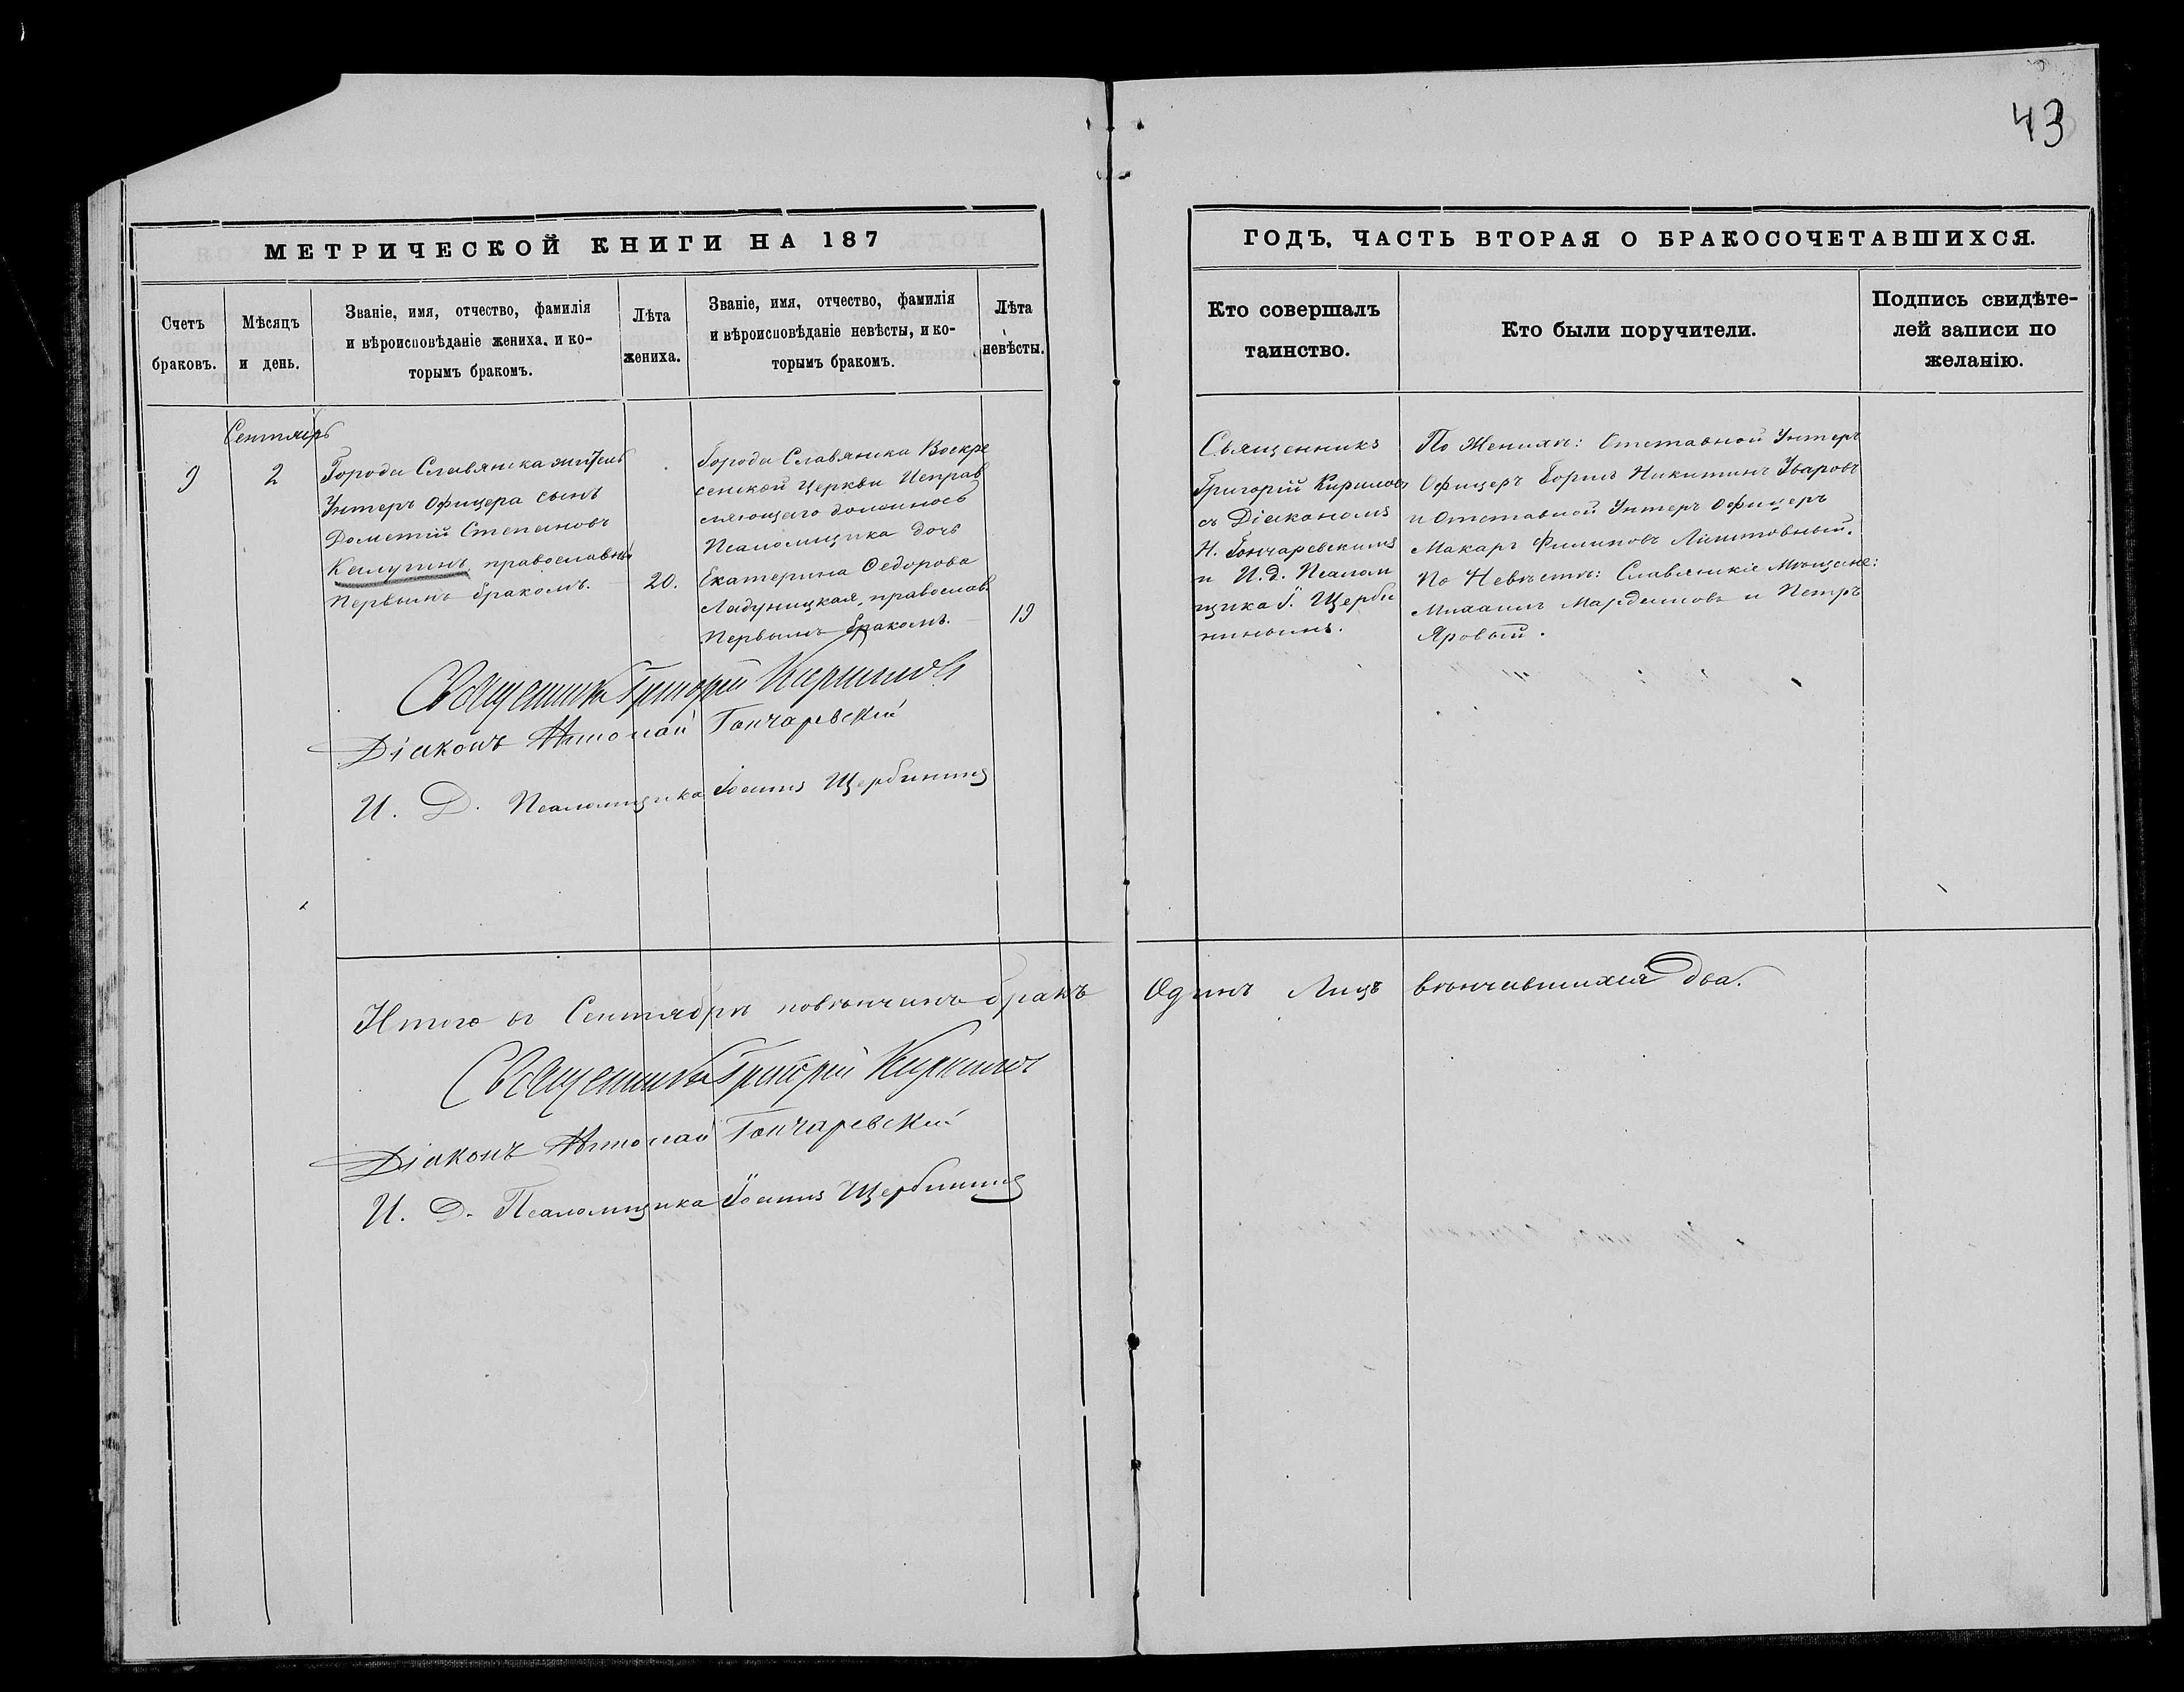 43
МЕТРИЧЕСКОЙ КНИГИ НА 187
Счетъ браковъ.
Мѣсяцъ и день.
Званіе, имя, отчество, фамилія
и вѣроисповѣданіе жениха, и ко-
торымъ бракомъ.
Лѣта жениха.
Званіе, имя, отчество, фамилія
и вѣроисповѣданіе невѣсты, и ко-
торымъ бракомъ.
Лѣта невѣсты.
Сентябрь
9
2
Города Славянска житель
Унтеръ Офицера сынъ
Дометій Степановъ
Калугинъ, православный
первымъ бракомъ.
20.
Города Славянска Воскре
сенской Церкви Исправ
ляющаго должность
Псаломщика дочь
Екатерина Федорова
Ладуницкая, православ.
Первымъ бракомъ.
19
Священникъ Григорій Кириловъ
Діаконъ Николай Гончаревскій
И. Д. Псаломщика Іоаннъ Щербининъ
Итого въ Сентябрѣ повѣнчанъ бракъ
Священникъ Григорій Кириловъ
Діаконъ Николай Гончаревскій
И. Д. Псаломщика Іоаннъ Щербининъ
ГОДЪ, ЧАСТЬ ВТОРАЯ О БРАКОСОЧЕТАВШИХСЯ.
Кто совершалъ
таинство.
Кто были поручители.
Подпись свидѣте-
лей записи по
желанію.
Священникъ
Григорій Кириловъ
съ Діакономъ
Н. Гончаревскимъ
и И. д. Псалом
щика І. Щерби
нинымъ.
По Женихѣ: Отставной Унтеръ
Офицеръ Борисъ Никитинъ Уваровъ
и Отставной Унтеръ Офицеръ
Макаръ Филиповъ
По Невѣстѣ: Славянскіе Мѣщане:
Михаилъ и Петръ
Яровый.
Одинъ Лицъ вѣнчавшихся два.